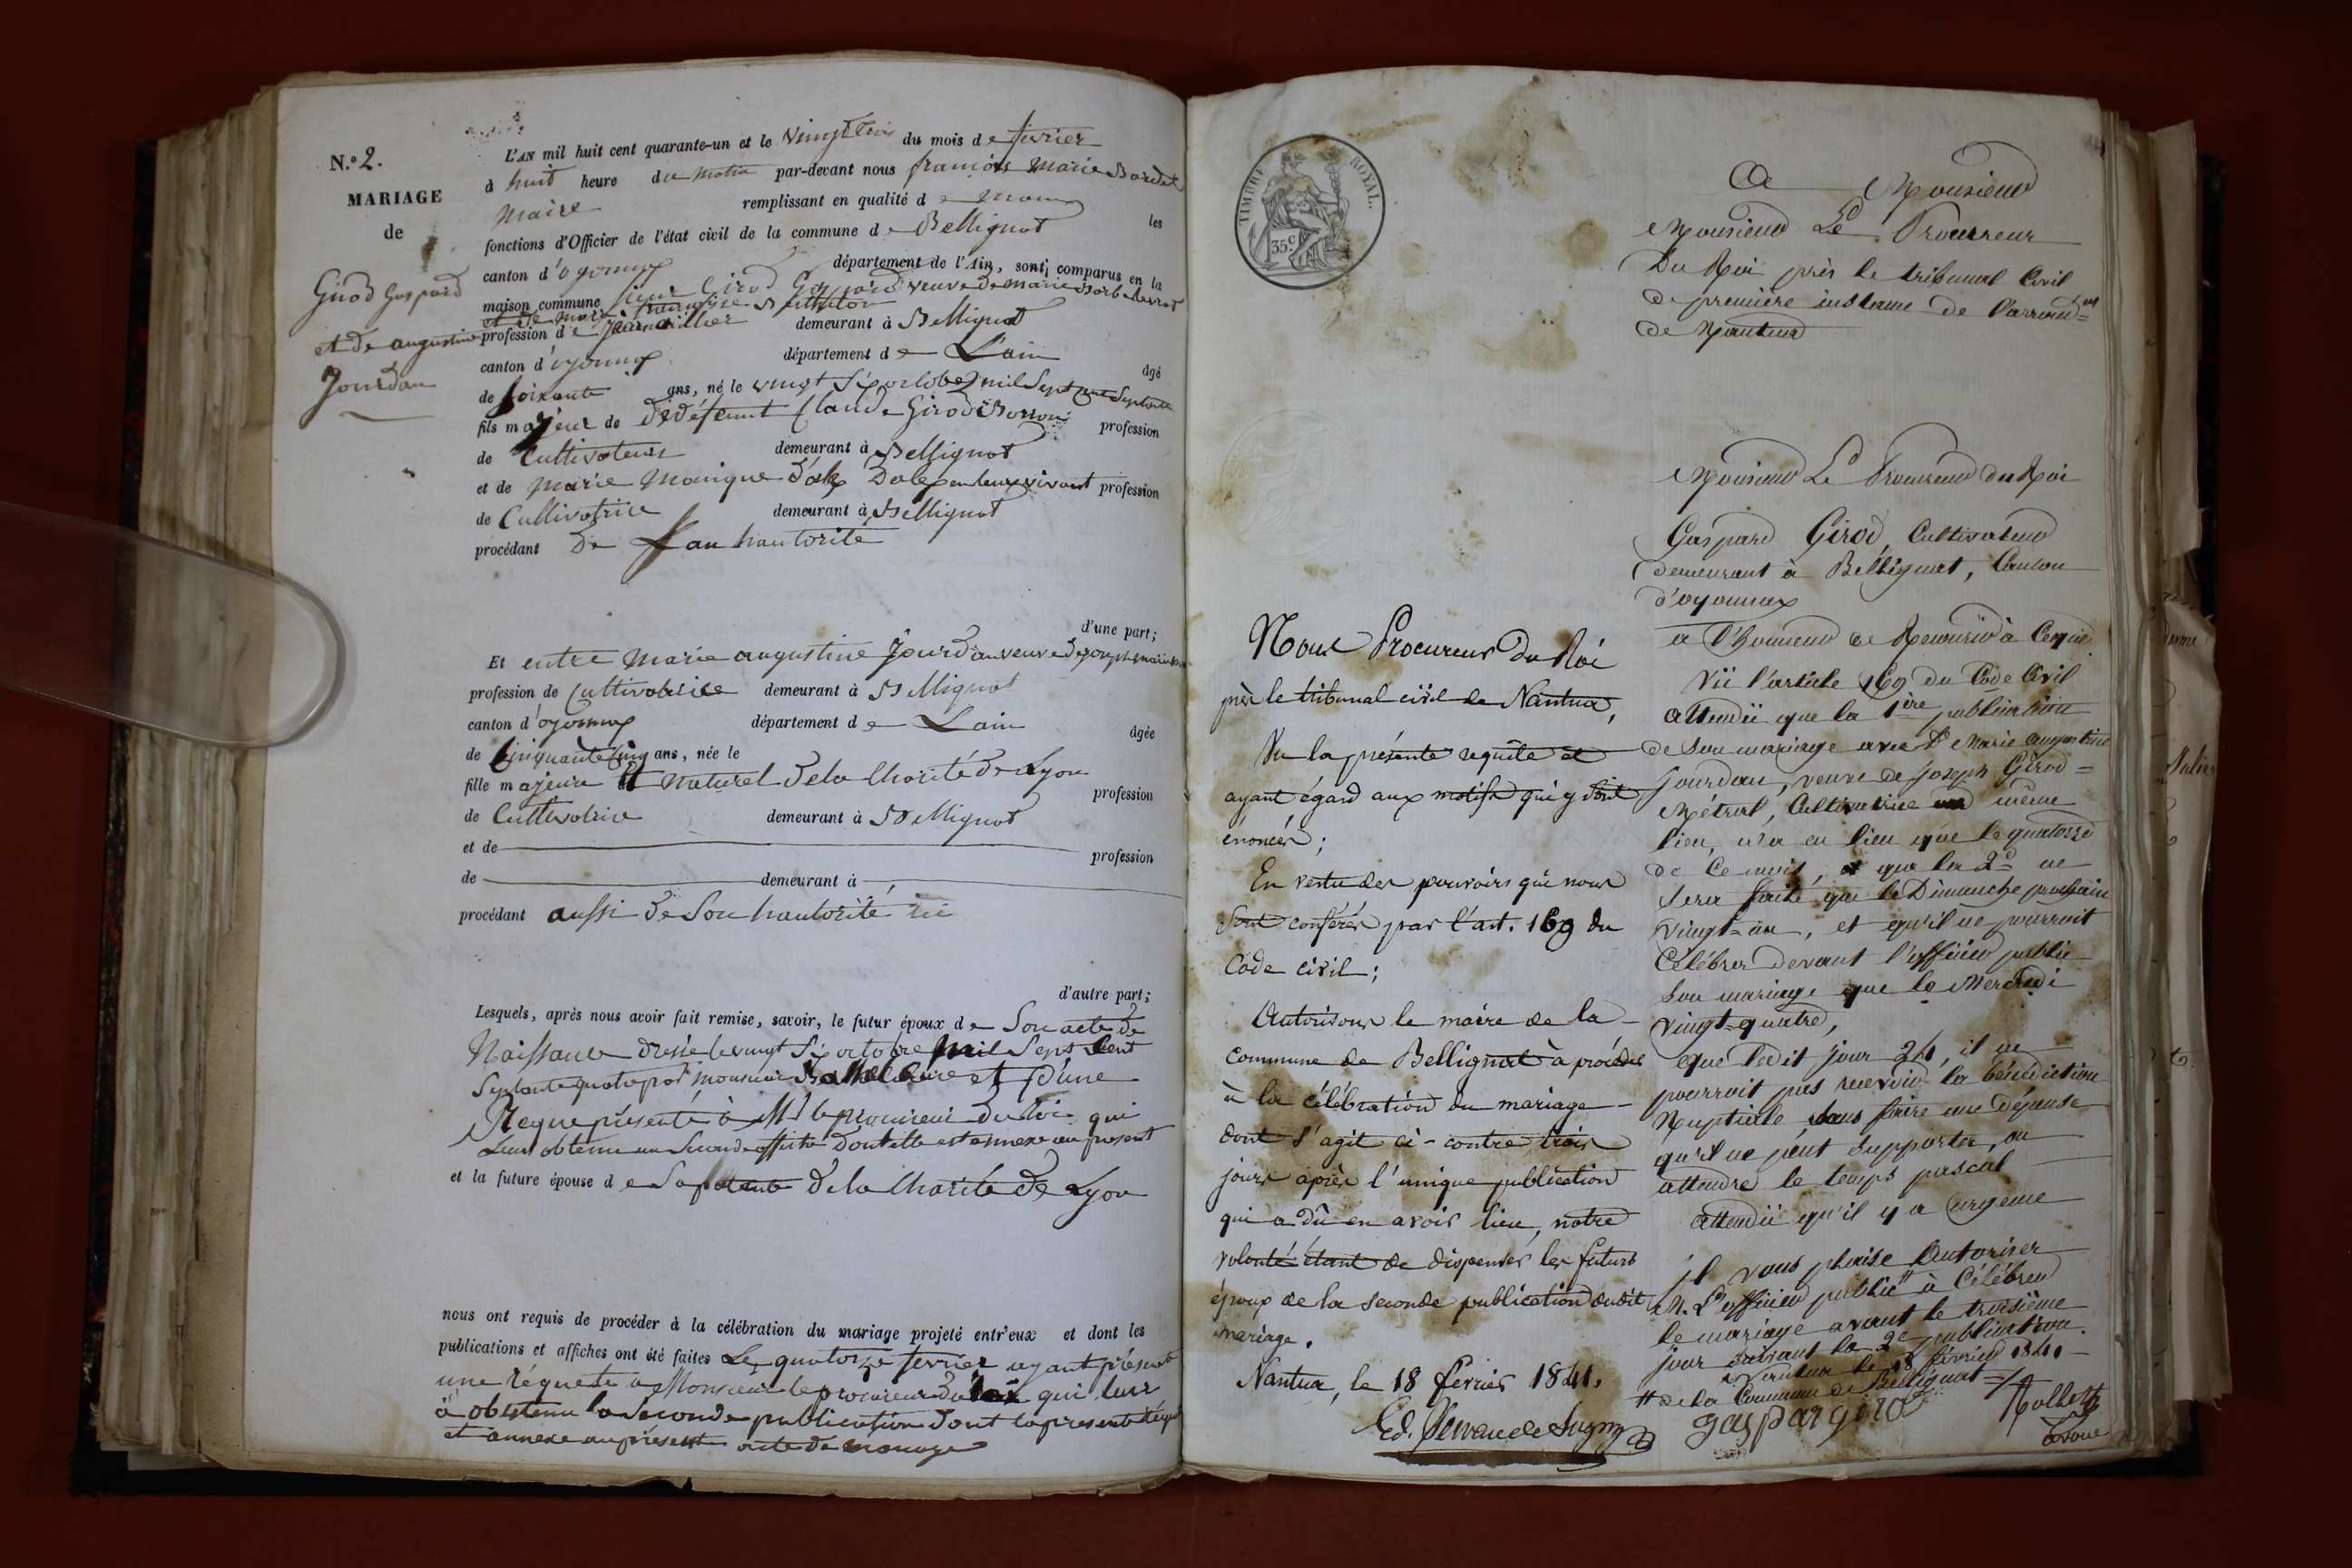 N.º 2.
MARIAGE
de
Girod Gaspard
et de augustine
Jourdan
L'AN mil huit cent quarante-un et le vingt trois du mois de fevrier
à huit heure du matin par-devant nous françois Marie
Maire remplissant en qualité de maire les
fonctions d'Officier de l'état civil de la commune de Bellignat
canton d'oyonnax département de l'Ain, sont comparus en la
maison commune sieur Girod Gaspard veuve de marie
et de marie françoise
profession de demeurant à Bellignat
canton d'oyonnax département de L'ain âgé
de soixante ans, né le vingt six octobre mil sept cent septante
fils majeur de De défeunt Claude Girod profession
de Cultivateur demeurant à Bellignat
et de marie Monique vivant profession
de Cultivatrice demeurant à Bellignat
procédant De Sau hautorité
d'une part;
Et entre Marie augustine Jourdan veuve de joseph
profession de Cultivatrice demeurant à Bellignat
canton d'oyonnax département de Lain âgée
de Cinquante cinq ans, née le
fille majeure et naturel de la Charité de Lyon profession
de Cultivatrice demeurant à Bellignat
et de profession
de demeurant à
procédant aussi de Son hautorité
d'autre part;
Lesquels, après nous avoir fait remise, savoir, le futur époux de Son acte de
Naissance dressé le vingt six octobre mil sept cent
septante quatre par monsieur et d'une
Reque présenté à Mr le procureur du roi qui
Leur obtenu un Seconde affiche dont elle est annexe au present
et la future épouse de Sa patente de la Charité de Lyon
nous ont requis de procéder à la célébration du mariage projeté entr'eux et dont les
publications et affiches ont été faites Le quatorze fevrier ayant présenté
une réquete a Monsieur le procureur du roi qui leur
à obtenu la Seconde publication dont la presente
et annexe au présent acte de mariage
TIMBRE ROYAL.
35 c.
Nous Procureur du Roi
près le tribunal civil de Nantua,
Vu la présente requête et
ayant égard aux motifs qui y sont
énoncés;
En vertu des pouvoirs qui nous
sont conférés par l'art. 169 du
Code civil;
Autorisons le maire de la
commune de Bellignat à procéder
à la célébration du mariage
dont s'agit ci-contre trois
jours après l'unique publication
qui a dû en avoir lieu, notre
volonté étant de dispenser les futurs
époux de la seconde publication dudit
mariage.
Nantua, le 18 février 1841.
A Monsieur
Monsieur Le Procureur
Du Roi près le tribunal Civil
de première instance de l'arrond=
de Nantua
Monsieur Le Procureur du Roi
Gaspard Girod, Cultivateur
demeurant à Bellignat, Canton
d'oyonnax
a l'honneur de
Vü l'article 169 du Code Civil
attendü que la 1ère publication
de son mariage avec De Marie augustine
jourdan, veuve de joseph Girod=
Métral, Cultivatrice même
lieu, n'a eu lieu que le quatorze
de Ce mois, et que la 2e ne
sera faite que le Dimanche prochain
vingt-un, et qu'il ne pourrait
Célébrer devant l'officier public
son mariage que le Mercredi
vingt-quatre,
que ledit jour 24, il ne
pourrait pas recevoir la bénédiction
Nuptialle sans faire une dépense
qu'il ne peut supporter, ou
attendre le temps pascal
attendü qu'il y a urgence
il vous plaise autoriser
M. L'officier public # à Célébrer
le mariage avant le troisième
jour suivant la 2e publication.
Nantua le 18 février 1841
# de la Commune de Bellignat
gaspar girod